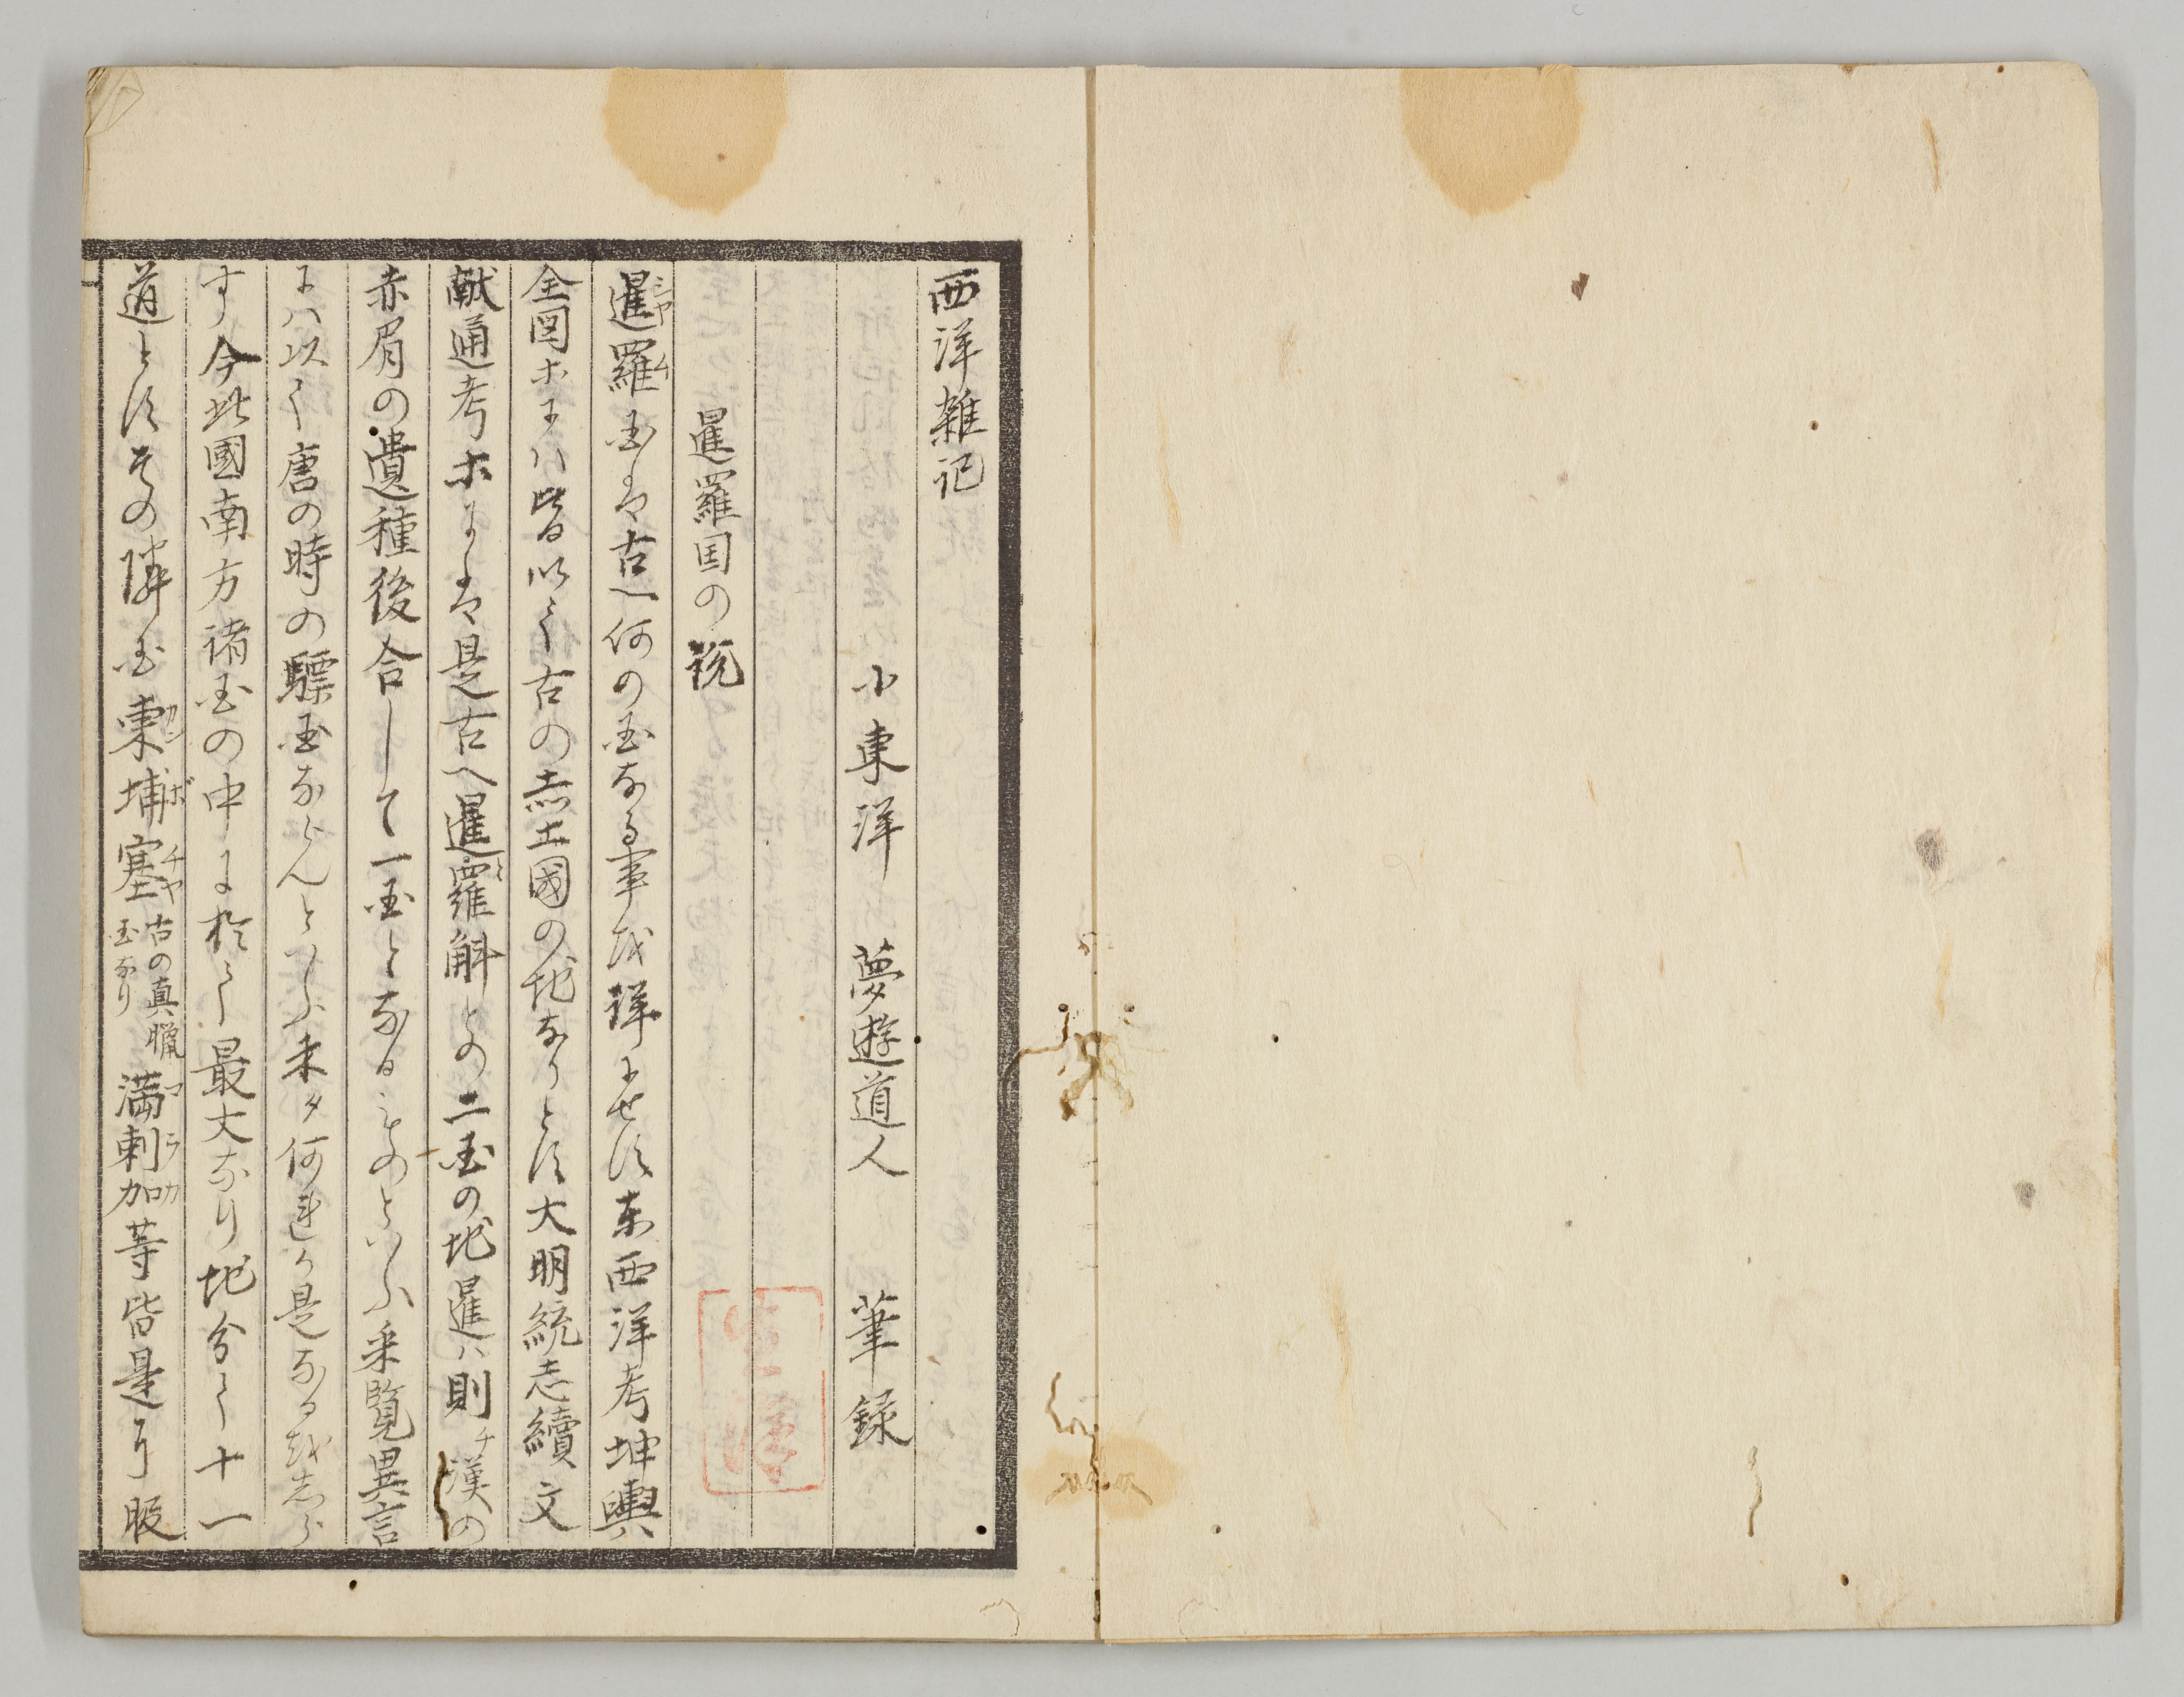 西洋雑記
小東洋　夢遊道人　筆録
暹羅国の説
暹羅国は古へ何の国なる事を詳にせす東西洋考坤輿
全図ホにハ皆以て古の赤土國の地なりとす大明統志續文
献通考ホには是古へ暹羅斛との二国の地暹ハ則チ漢の
赤眉の遺種後合して一国となるものといふ采覧異言
にハ以て唐の時の驃国ならんといふ未タ何れか是なるを志ら
す今此國南方諸国の中に於て最大なり地分て十一
道とすその隣国東埔塞古の真臘国なり満剌加等皆是に服